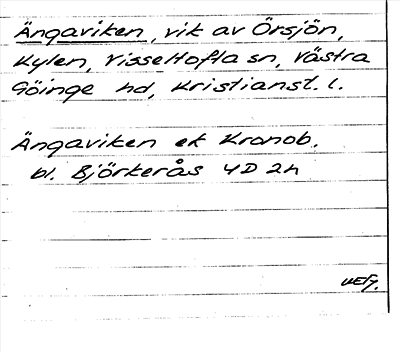 Ängaviken, vik av Örsjön,
Kylen, Visseltofta sn, Västra
Göinge hd, Kristianst. l.
Ängaviken ek Kronob.
bl. Björkerås 4D 2h